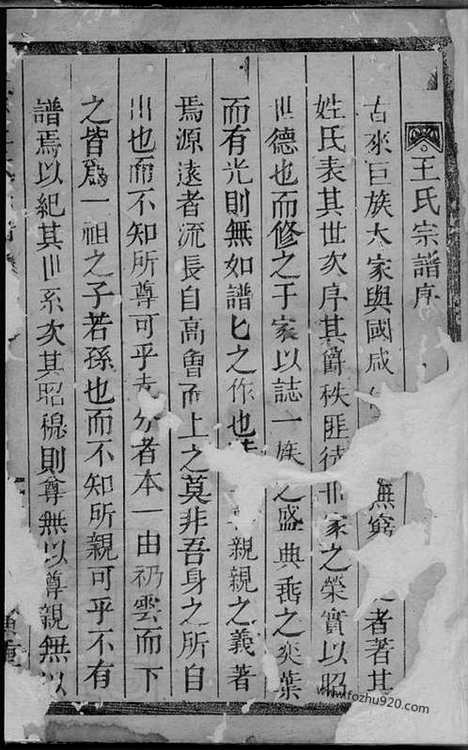 王氏宗譜序
古來巨族大家與國咸 無窮 者著其
姓氏表其世次序其爵秩匪徒世家之榮實以昭
世德也而修之于家以誌一族之盛典垂之奕葉
而有光則無如譜匕之作也 親親之義著
焉源遠者流長自高曾而上之莫非吾身之所自
出也而不知所尊可乎 分者本一由礽雲而下
之皆爲一祖之子若孫也而不知所親可乎不有
譜焉以紀其世系次其昭穆則尊無以尊親無以
www.fozhu920.com